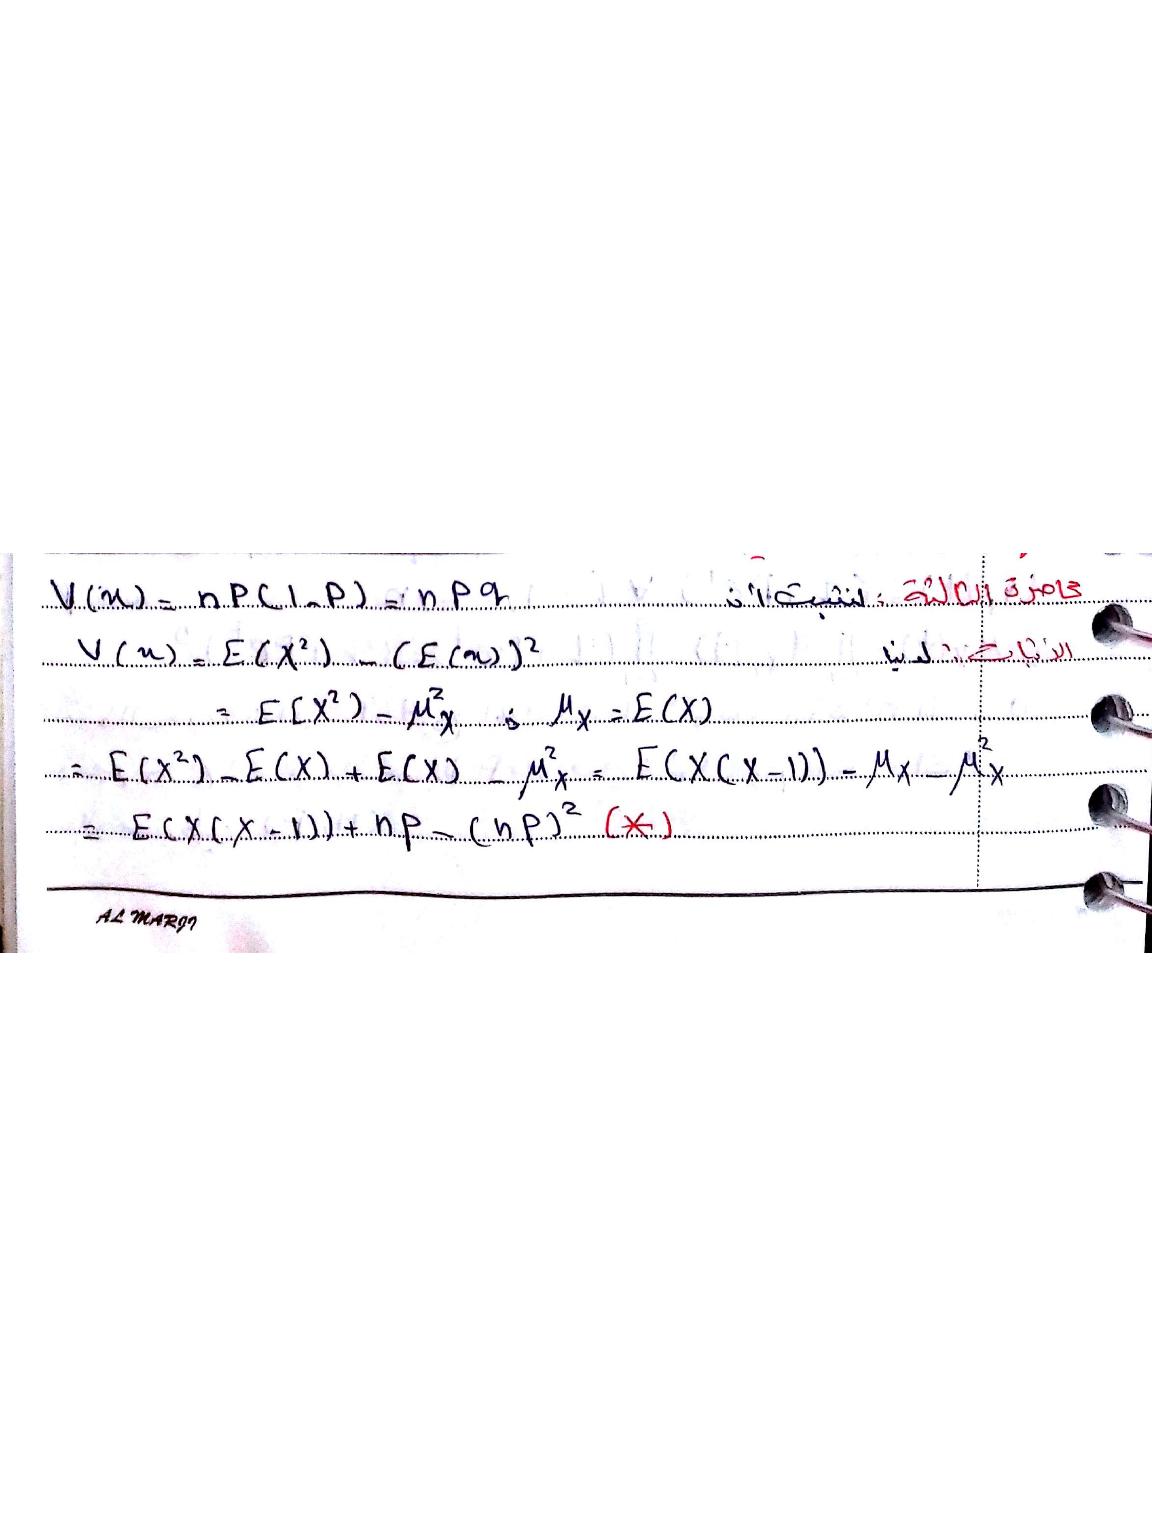 محاضرة الثالثة : لنثبت أن V(x) = nP(1-P) = npq
الاثبات : لدينا V(x) = E(X²) - (E(x))²
= E(X²) - μ²x ; μx = E(X)
= E(X²) - E(X) + E(X) - μ²x = E(X(X-1)) - μx - μ²x
= E(X(X-1)) + np - (np)² (*)
AL MARJI